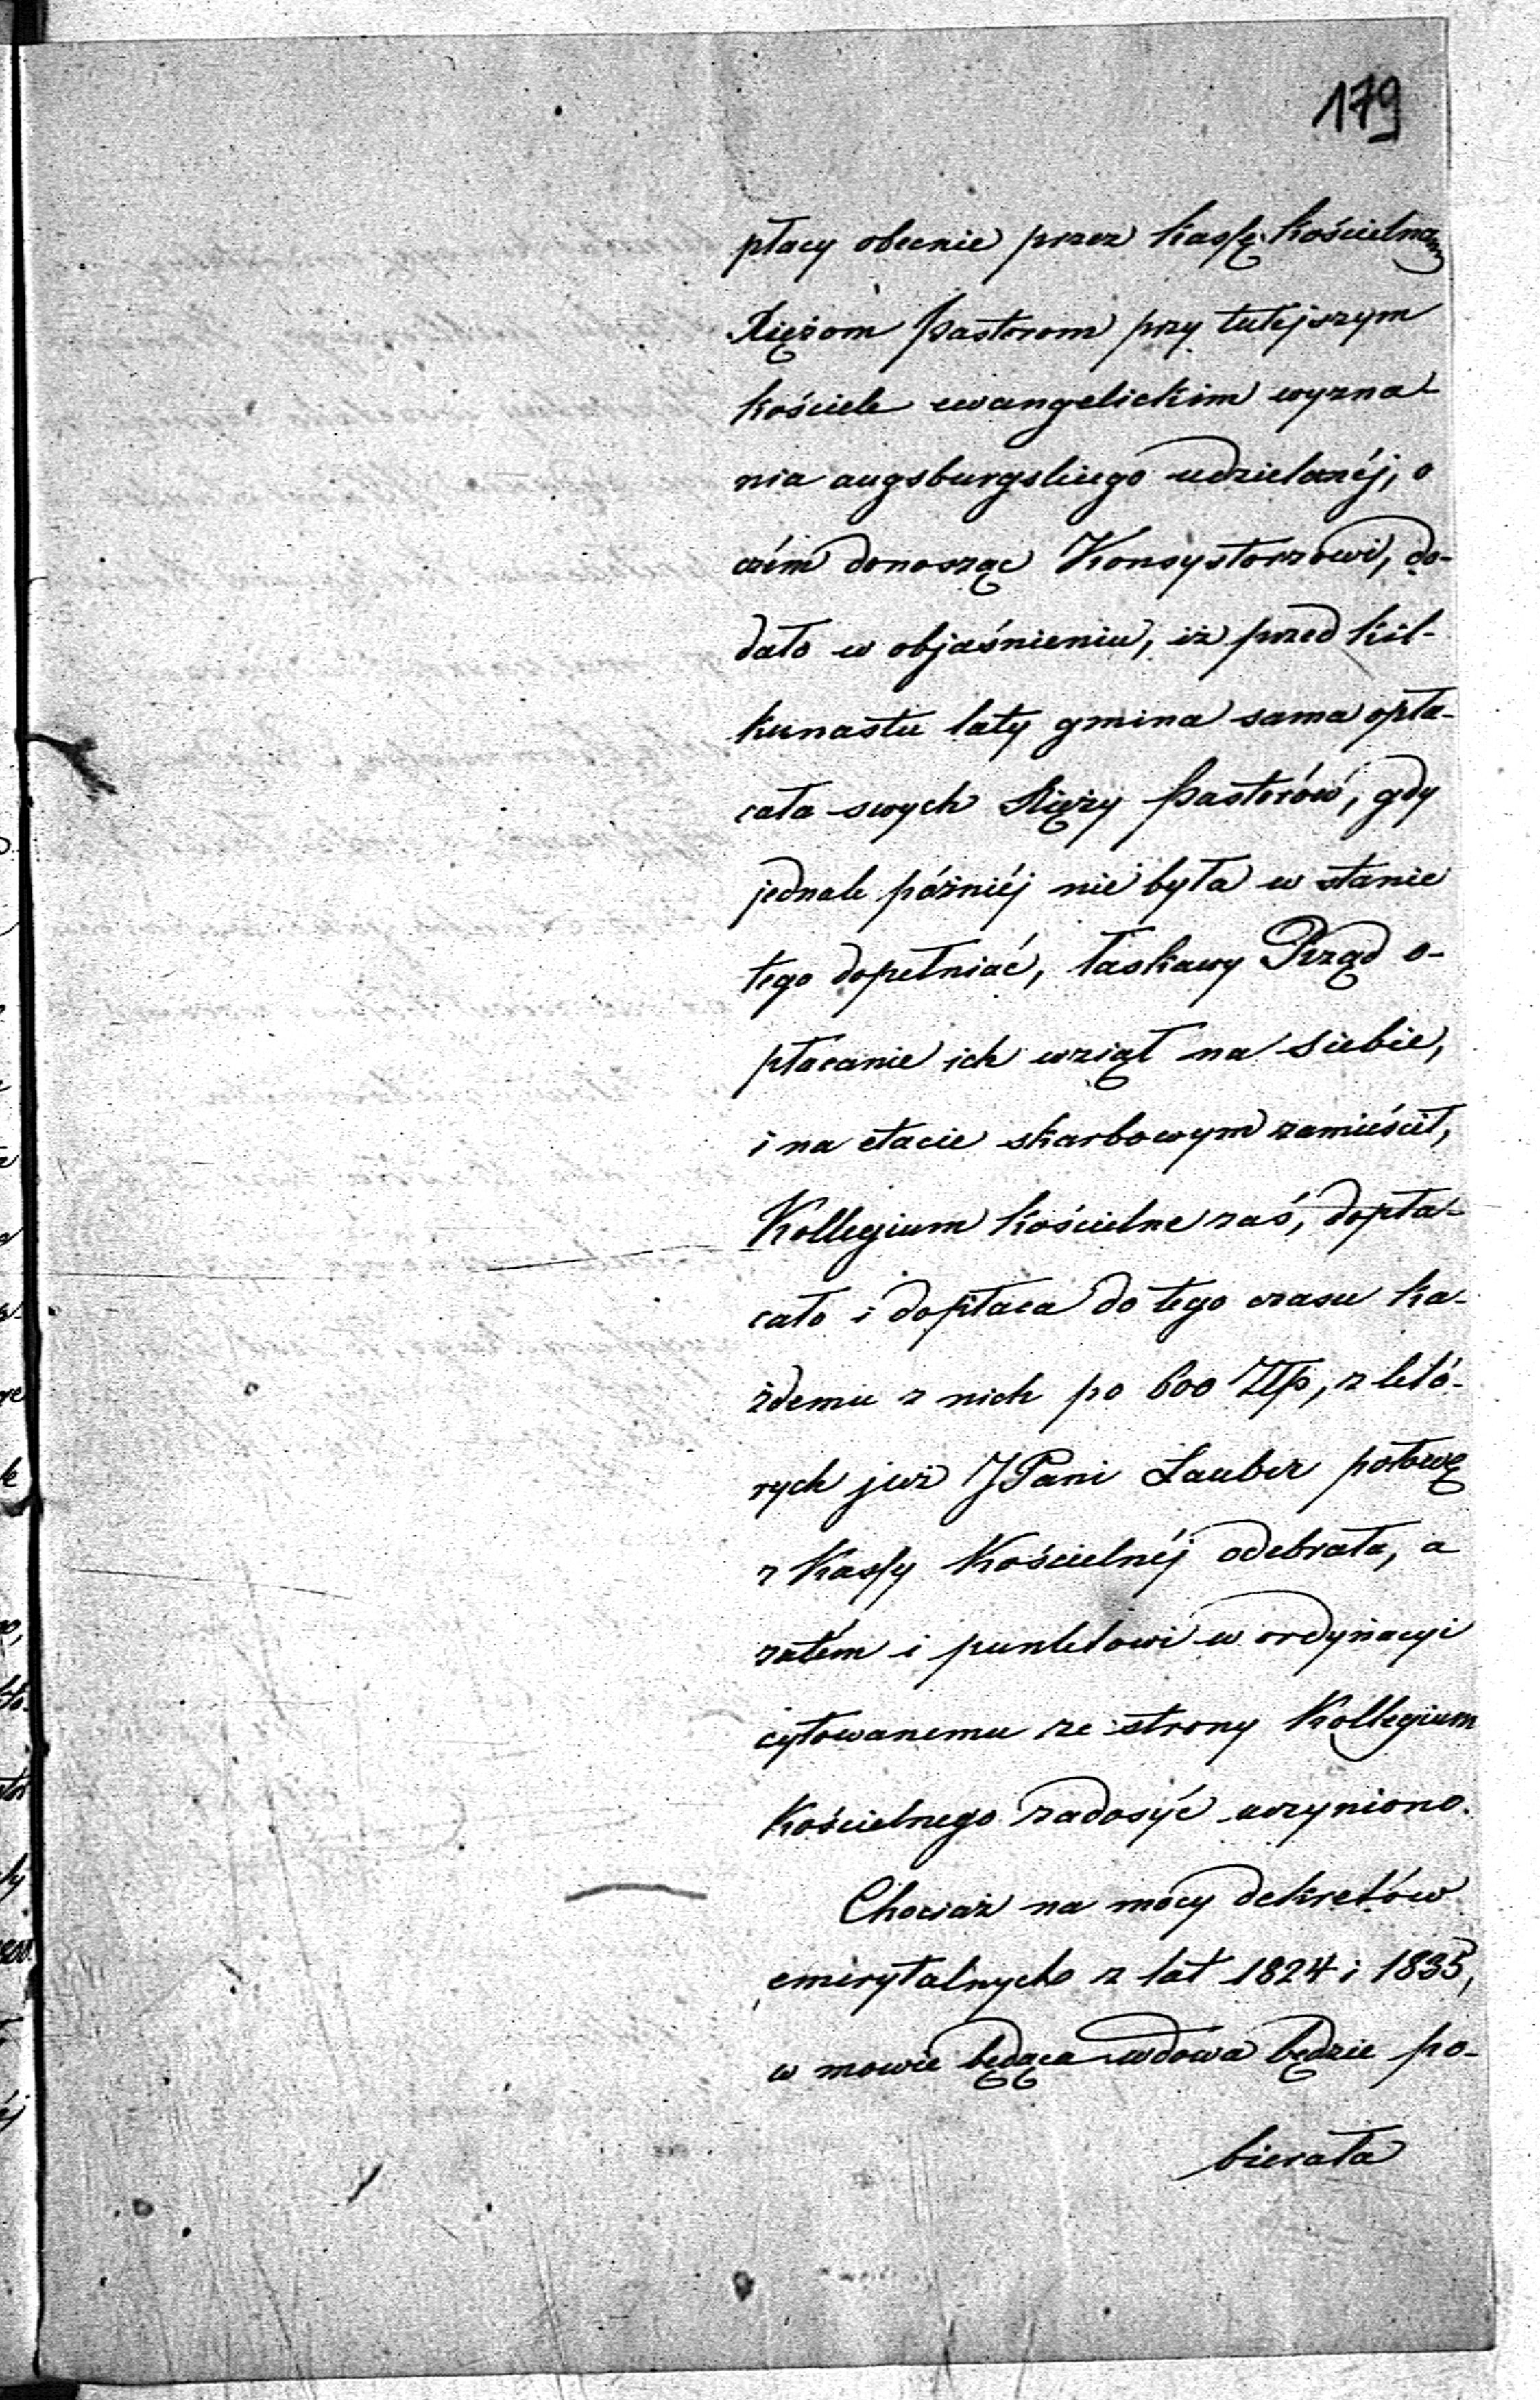 179
płacy obecnie przez Kassę Kościelną
Xiężom Pastorom przy tutejszym
kościele ewangelickim wyzna-
nia augsburgskiego udzielanéj, o
czém donosząc Konsystorzowi, do-
dało w objaśnieniu, iż przed kil-
kunastu laty gmina sama opła-
cała swych Xięży Pastorów, gdy
jednak późniéj nie była w stanie
tego dopełniać, łaskawy Rząd o-
płacanie ich wziął na siebie,
i na etacie skarbowym zamieścił,
Kollegium Kościelne zaś, dopła-
cało i dopłaca do tego czasu ka-
żdemu z nich po 600 Złp, z któ-
rych już JPani Lauber połowę
z Kassy Kościelnéj odebrała, a
zatém i punktowi w ordynacyi
cytowanemu ze strony Kollegium
Kościelnego zadosyć uczyniono.
Chociaż na mocy dekretów
emerytalnych z lat 1824 i 1835,
w mowie będąca wdowa będzie po-
bierała